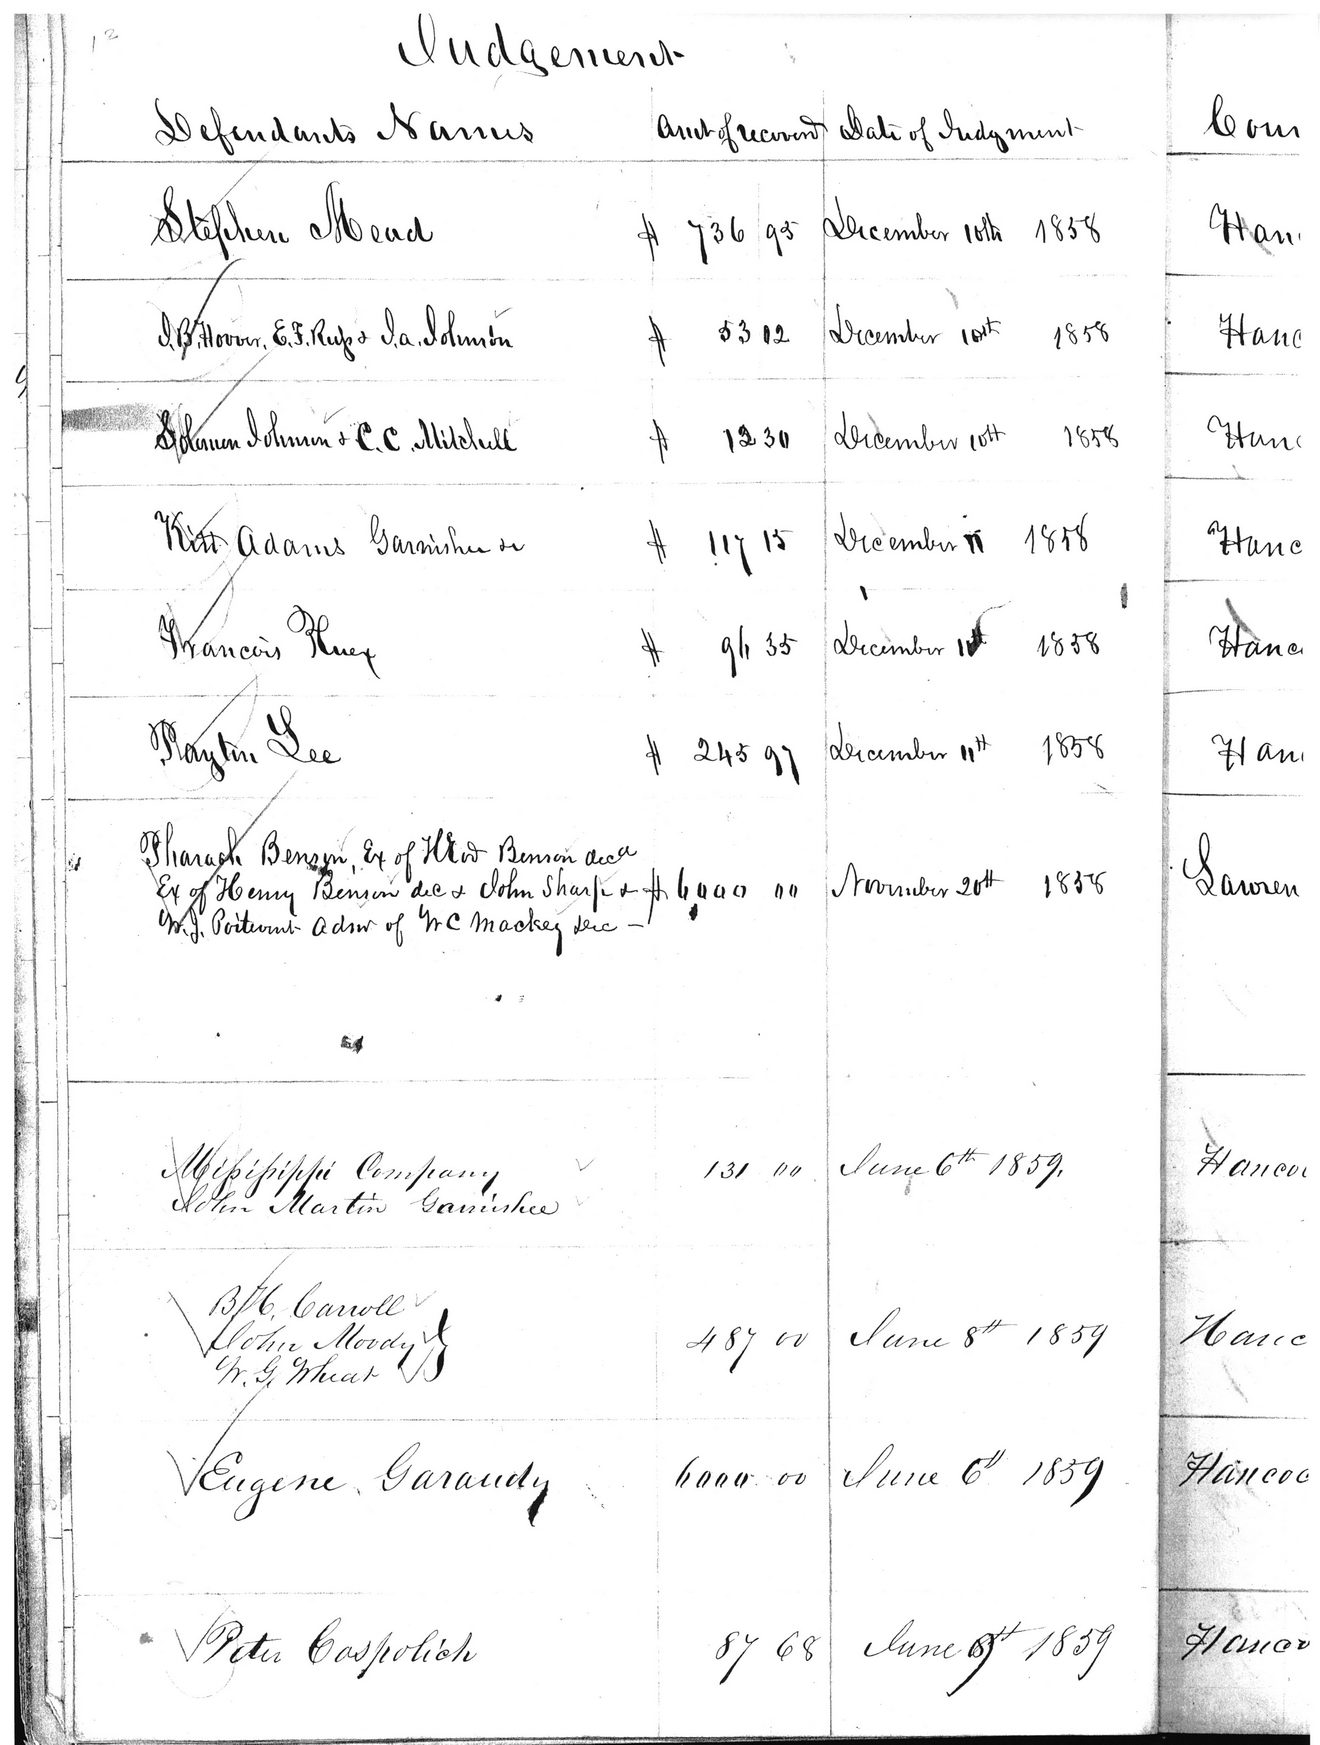 12
Judgement
Defendants Names Amt of recovered Date of Judgment Cour
Stephen Mead $ 736 95 December 10th 1858 Han
J.B. Hoover, E.F. Rups & J.a. Johnson $ 53 02 December 10th 1858 Hanc
Solomon Johnson & C.C. Mitchell $ 12 30 December 10th 1858 Hanc
Kitt Adams Garnishee &c $ 117 15 December 11 1858 Hanc
Francois Huex $ 96 35 December 11th 1858 Hanc
Raytin Lee $ 245 97 December 11th 1858 Han
Pharaoh Benson, Ex of Benson decd
Ex of Henry Benson dec & John Sharp & $ 6000 00 November 20th 1858 Lawren
W.J. Poitevent Admr of W C Mackey dec —
Missisippi Company 131 00 June 6th 1859. Hancoc
John Martin Garnishee
B.H. Carroll
John Moody 487 00 June 8th 1859 Hanc
W. G. Wheat
Eugene Garaudy 6000 00 June 6th 1859 Hancoc
Peter Cospolich 87 68 June 9th 1859 Hanco